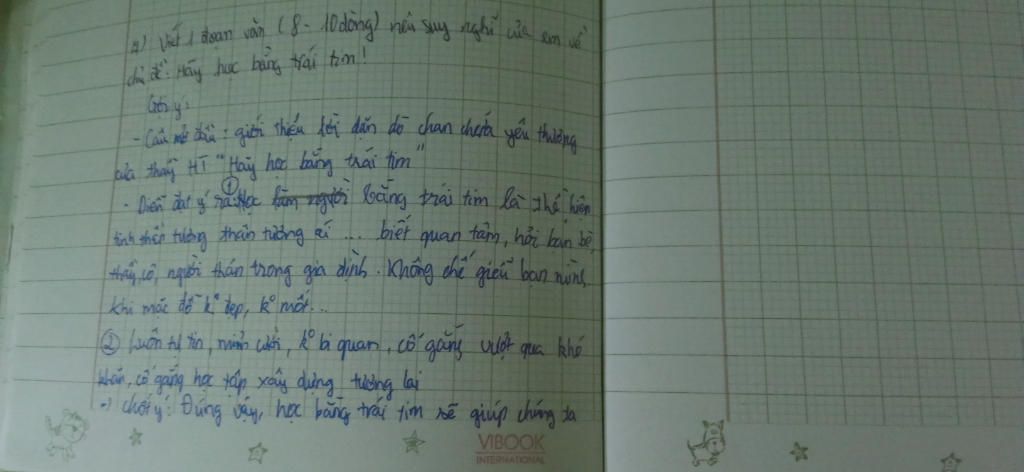 4) Viết 1 đoạn văn (8 - 10 dòng) nêu suy nghĩ của em về
chủ đề: Hãy học bằng trái tim!
Gợi ý:
- Câu mở đầu: giới thiệu lời dặn dò chan chứa yêu thương
của thầy HT "Hãy học bằng trái tim"
- Diễn đạt ý ra: ① Học làm người bằng trái tim là thể hiện
tinh thần tương thân tương ái ... biết quan tâm, hỏi bạn bè,
thầy, cô, người thân trong gia định. Không chế giễu bạn mình
khi mặc đồ k° đẹp, k° mốt...
② Luôn tự tin, mỉm cười, k° bi quan, cố gắng vượt qua khó
khăn, cố gắng học tập xây dựng tương lai
→ chốt ý: Đúng vậy, học bằng trái tim sẽ giúp chúng ta
VIBOOK
INTERNATIONAL